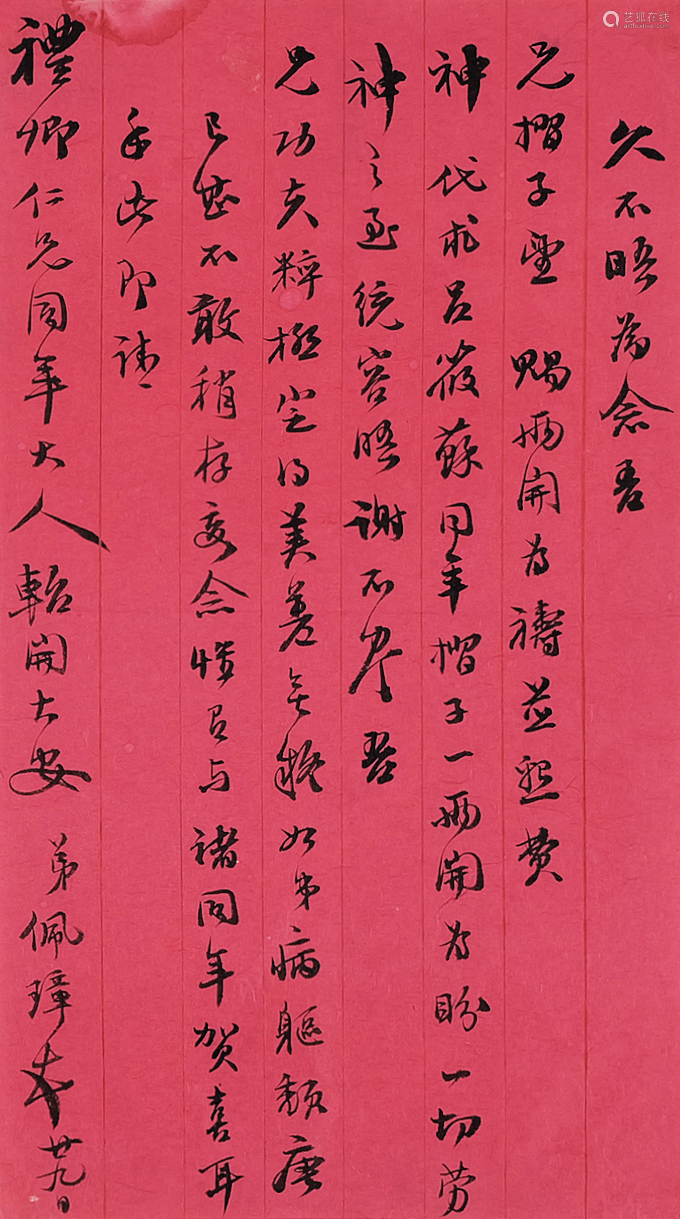 久不晤為念吾
兄摺子望 賜兩開為禱並照費
神 代求呂筱蘇同年摺子一兩開為盼一切劳
神之至統容晤谢不尽吾
兄功夫粹極定得美差無疑如弟病軀頹唐
已甚不敢稍存妄念惟有与諸同年贺喜耳
手此即請
禮卿仁兄同年大人軺開大安 弟佩璋 廿九日
艺狐在线